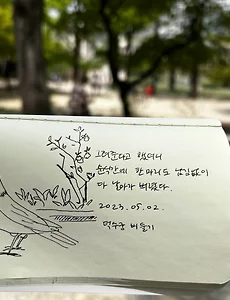 그려준다고 했더니
순식간에 한 마리도 남김없이
다 날아가 버렸다.
2023.05.02.
덕수궁 비둘기